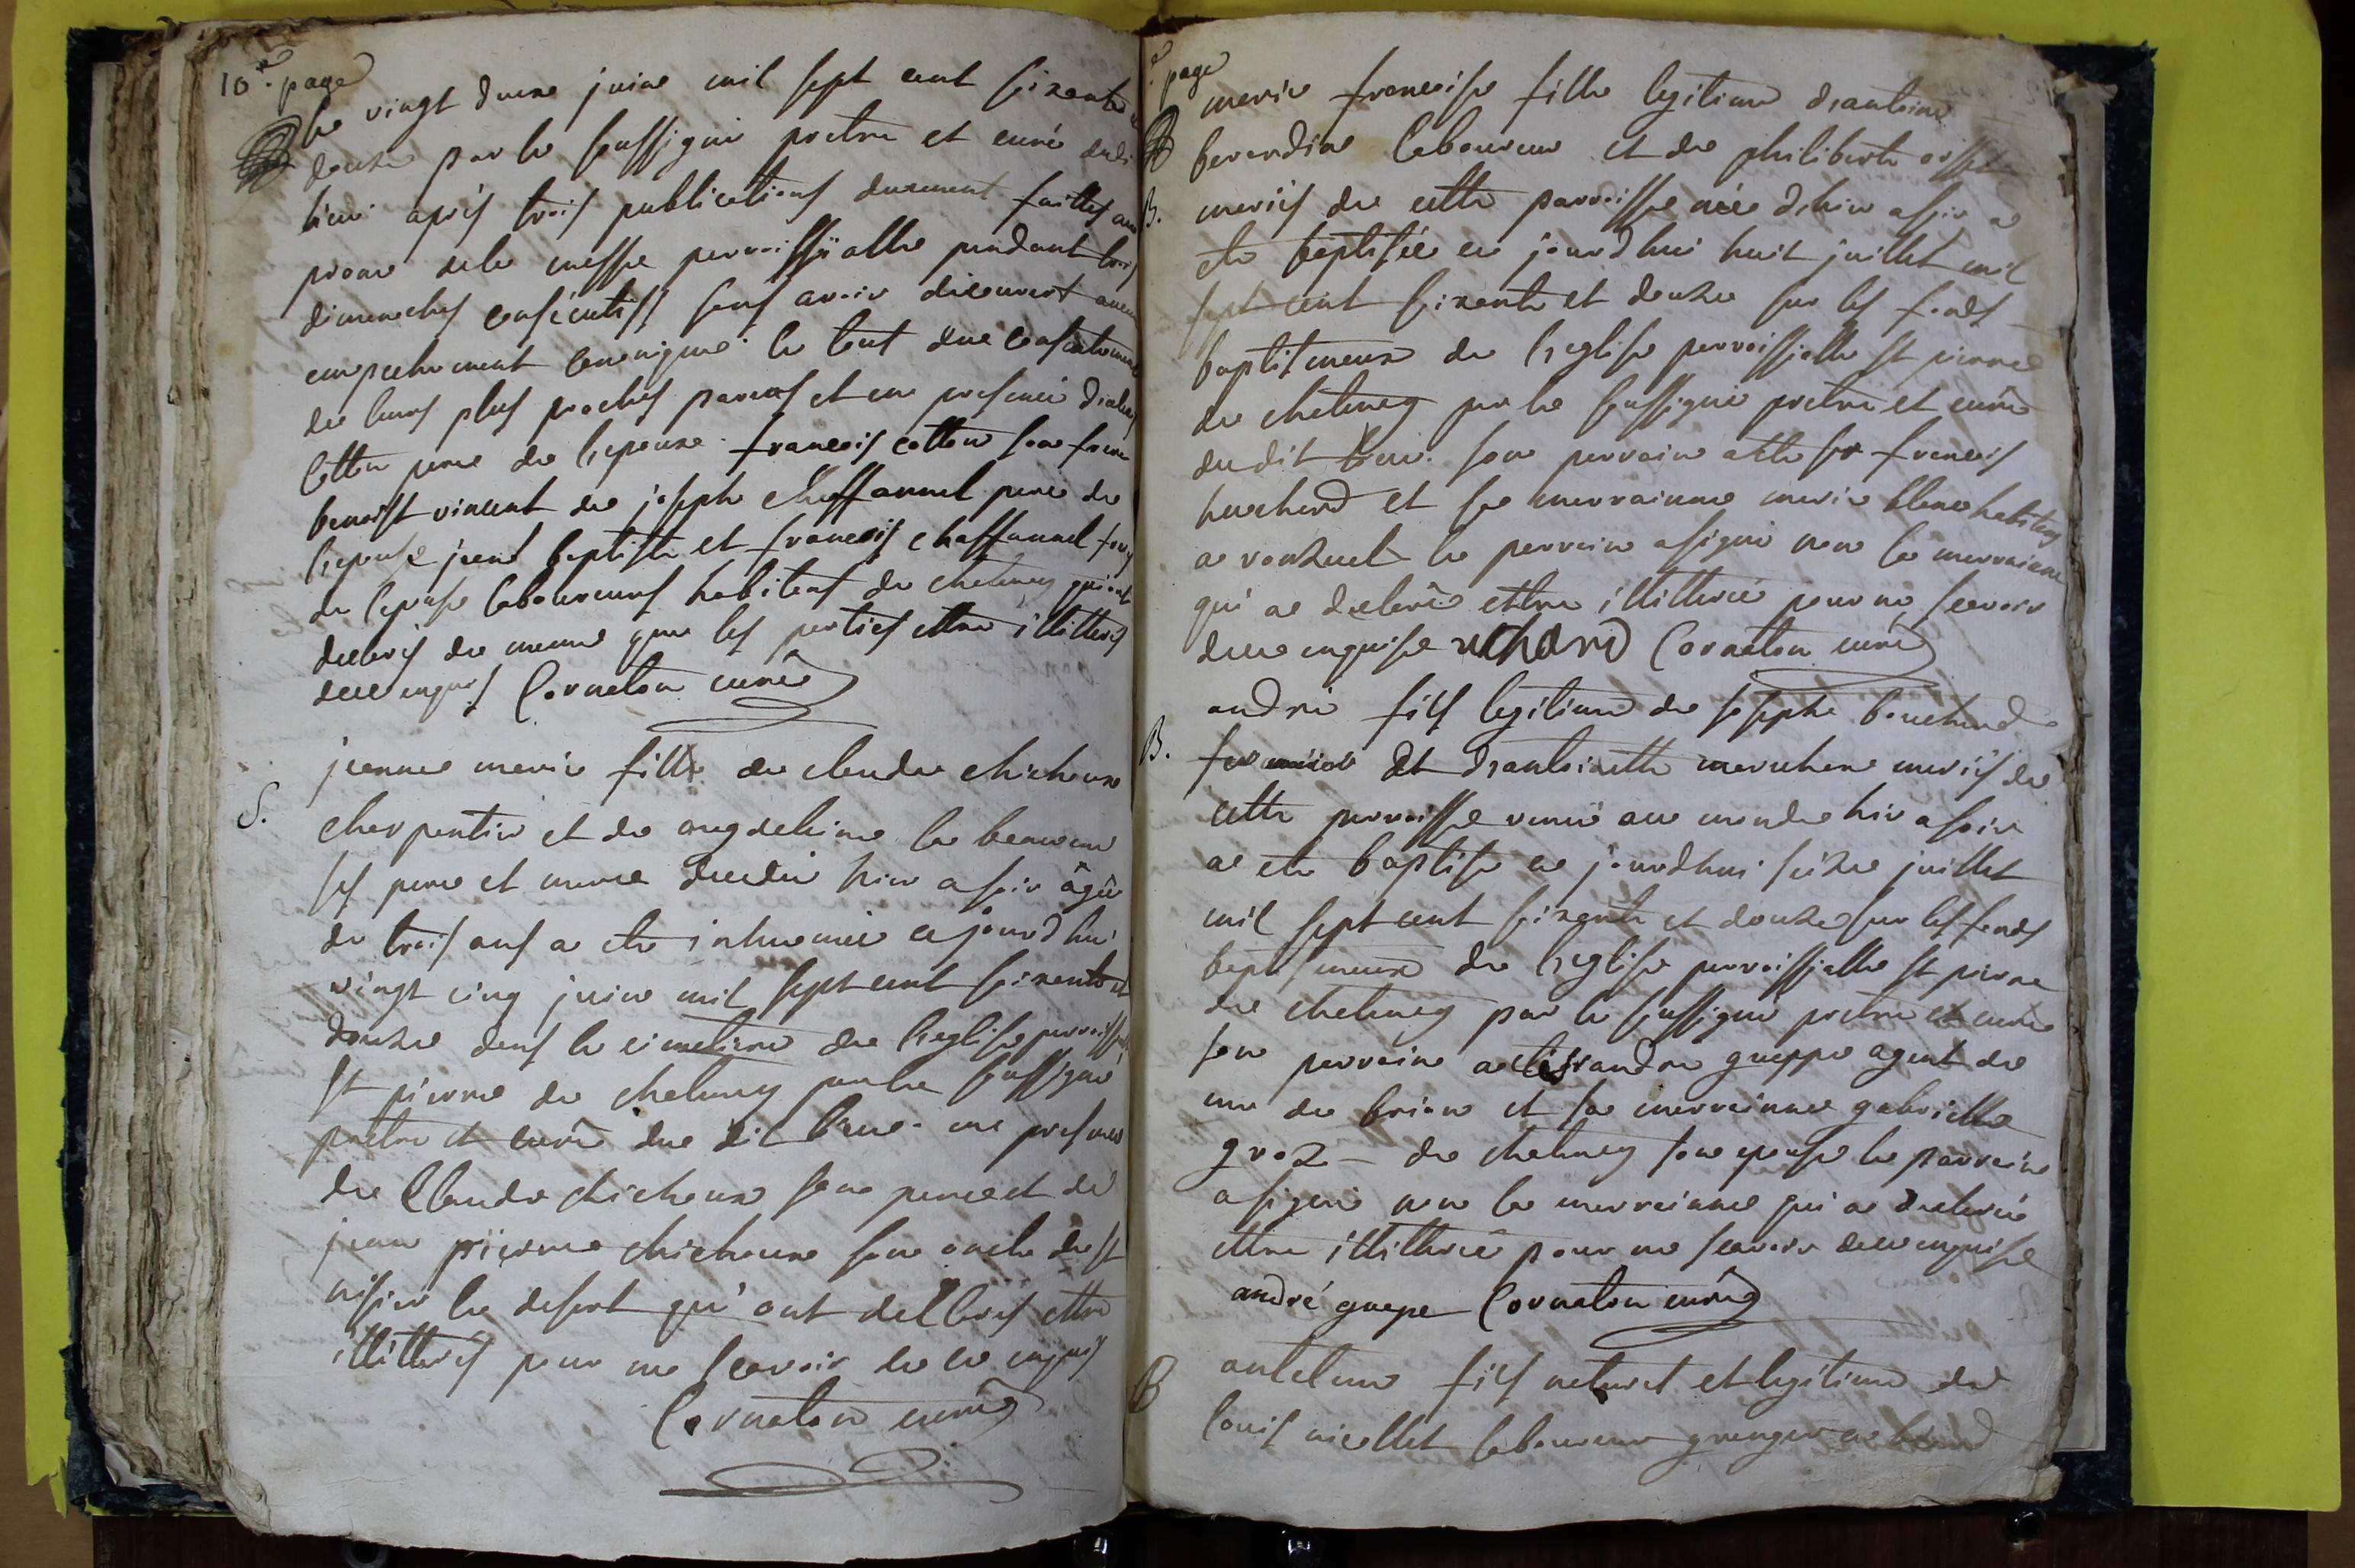 10.e page
le vingt deux juin mil sept cent soixante et
douze par le soussigné pretre et curé dudi
lieu après trois publications duement faittes au
prone de la messe parroissialle pendant trois
dimanches consécutifs sans avoir découvert aucun
empechement canonique le tout du consentement
de leurs plus proches parens et en presence
Cotton pere de l'epouse francois cotton son frere
benoist vincent de joseph chaffannel pere de
l'epouse jean baptiste et francois chaffannel
de lepouse laboureurs habitans de chetmey qui ont
declarés de meme que les parties ettre illitterés
dece enquis Cornaton curé
S.
jeanne marie fille de claude chicheux
charpentier et de magdelaine
ses pere et mere decedée hier a soir âgée
de trois ans a ete inhumée ce jourd hui
vingt cinq juin mil sept cent soixante et
douze dans le cimetiere de l'eglise parroissialle
st pierre de chetmey par le soussigné
pretre et curé du dit lieu en presence
de Claude chicheux son pere et de
jean pierre chicheux son oncle de st
nisier le desert qui ont declarés ettre
illitterés pour ne scavoir de ce enquis
Cornaton curé
page
B.
marie francoise fille legitime d'antoine
berardin laboureur et de philiberte
mariés de cette parroisse née d'hier a soir a
ete baptisée ce jourd hui huit juillet mil
sept cent soixante et douze sur les fonds
baptismeaux de l'eglise parroissialle st pierre
de chetmey par le soussigné pretre et curé
dudit lieu son parrain a ete sr francois
huchard et sa marrainne marie blanc habitans
a le parrain a signé non la marrainne
qui a declaré ettre illitterée pour ne scavoir
dece enquise uchard Cornaton curé
B.
andré fils legitime de joseph bouchard
fermier et d'antoinette mariés de
cette parroisse venu au monde hier a soir
a ete baptisé ce jourdhui seize juillet
mil sept cent soixante et douze sur les fonds
baptismeaux de l'eglise parroissialle st pierre
de chetmey par le soussigné pretre et curé
son parrain a ete sr andre gueppe agent de
mr de brion et sa marrainne gabrielle
groz de chetmey son epouse le parrain
a signé non la marrainne qui a declarée
ettre illitterée pour ne scavoir dece enquise
andré guepe Cornaton curé
B
antelme fils naturel et legitime de
louis nicollet laboureur granger